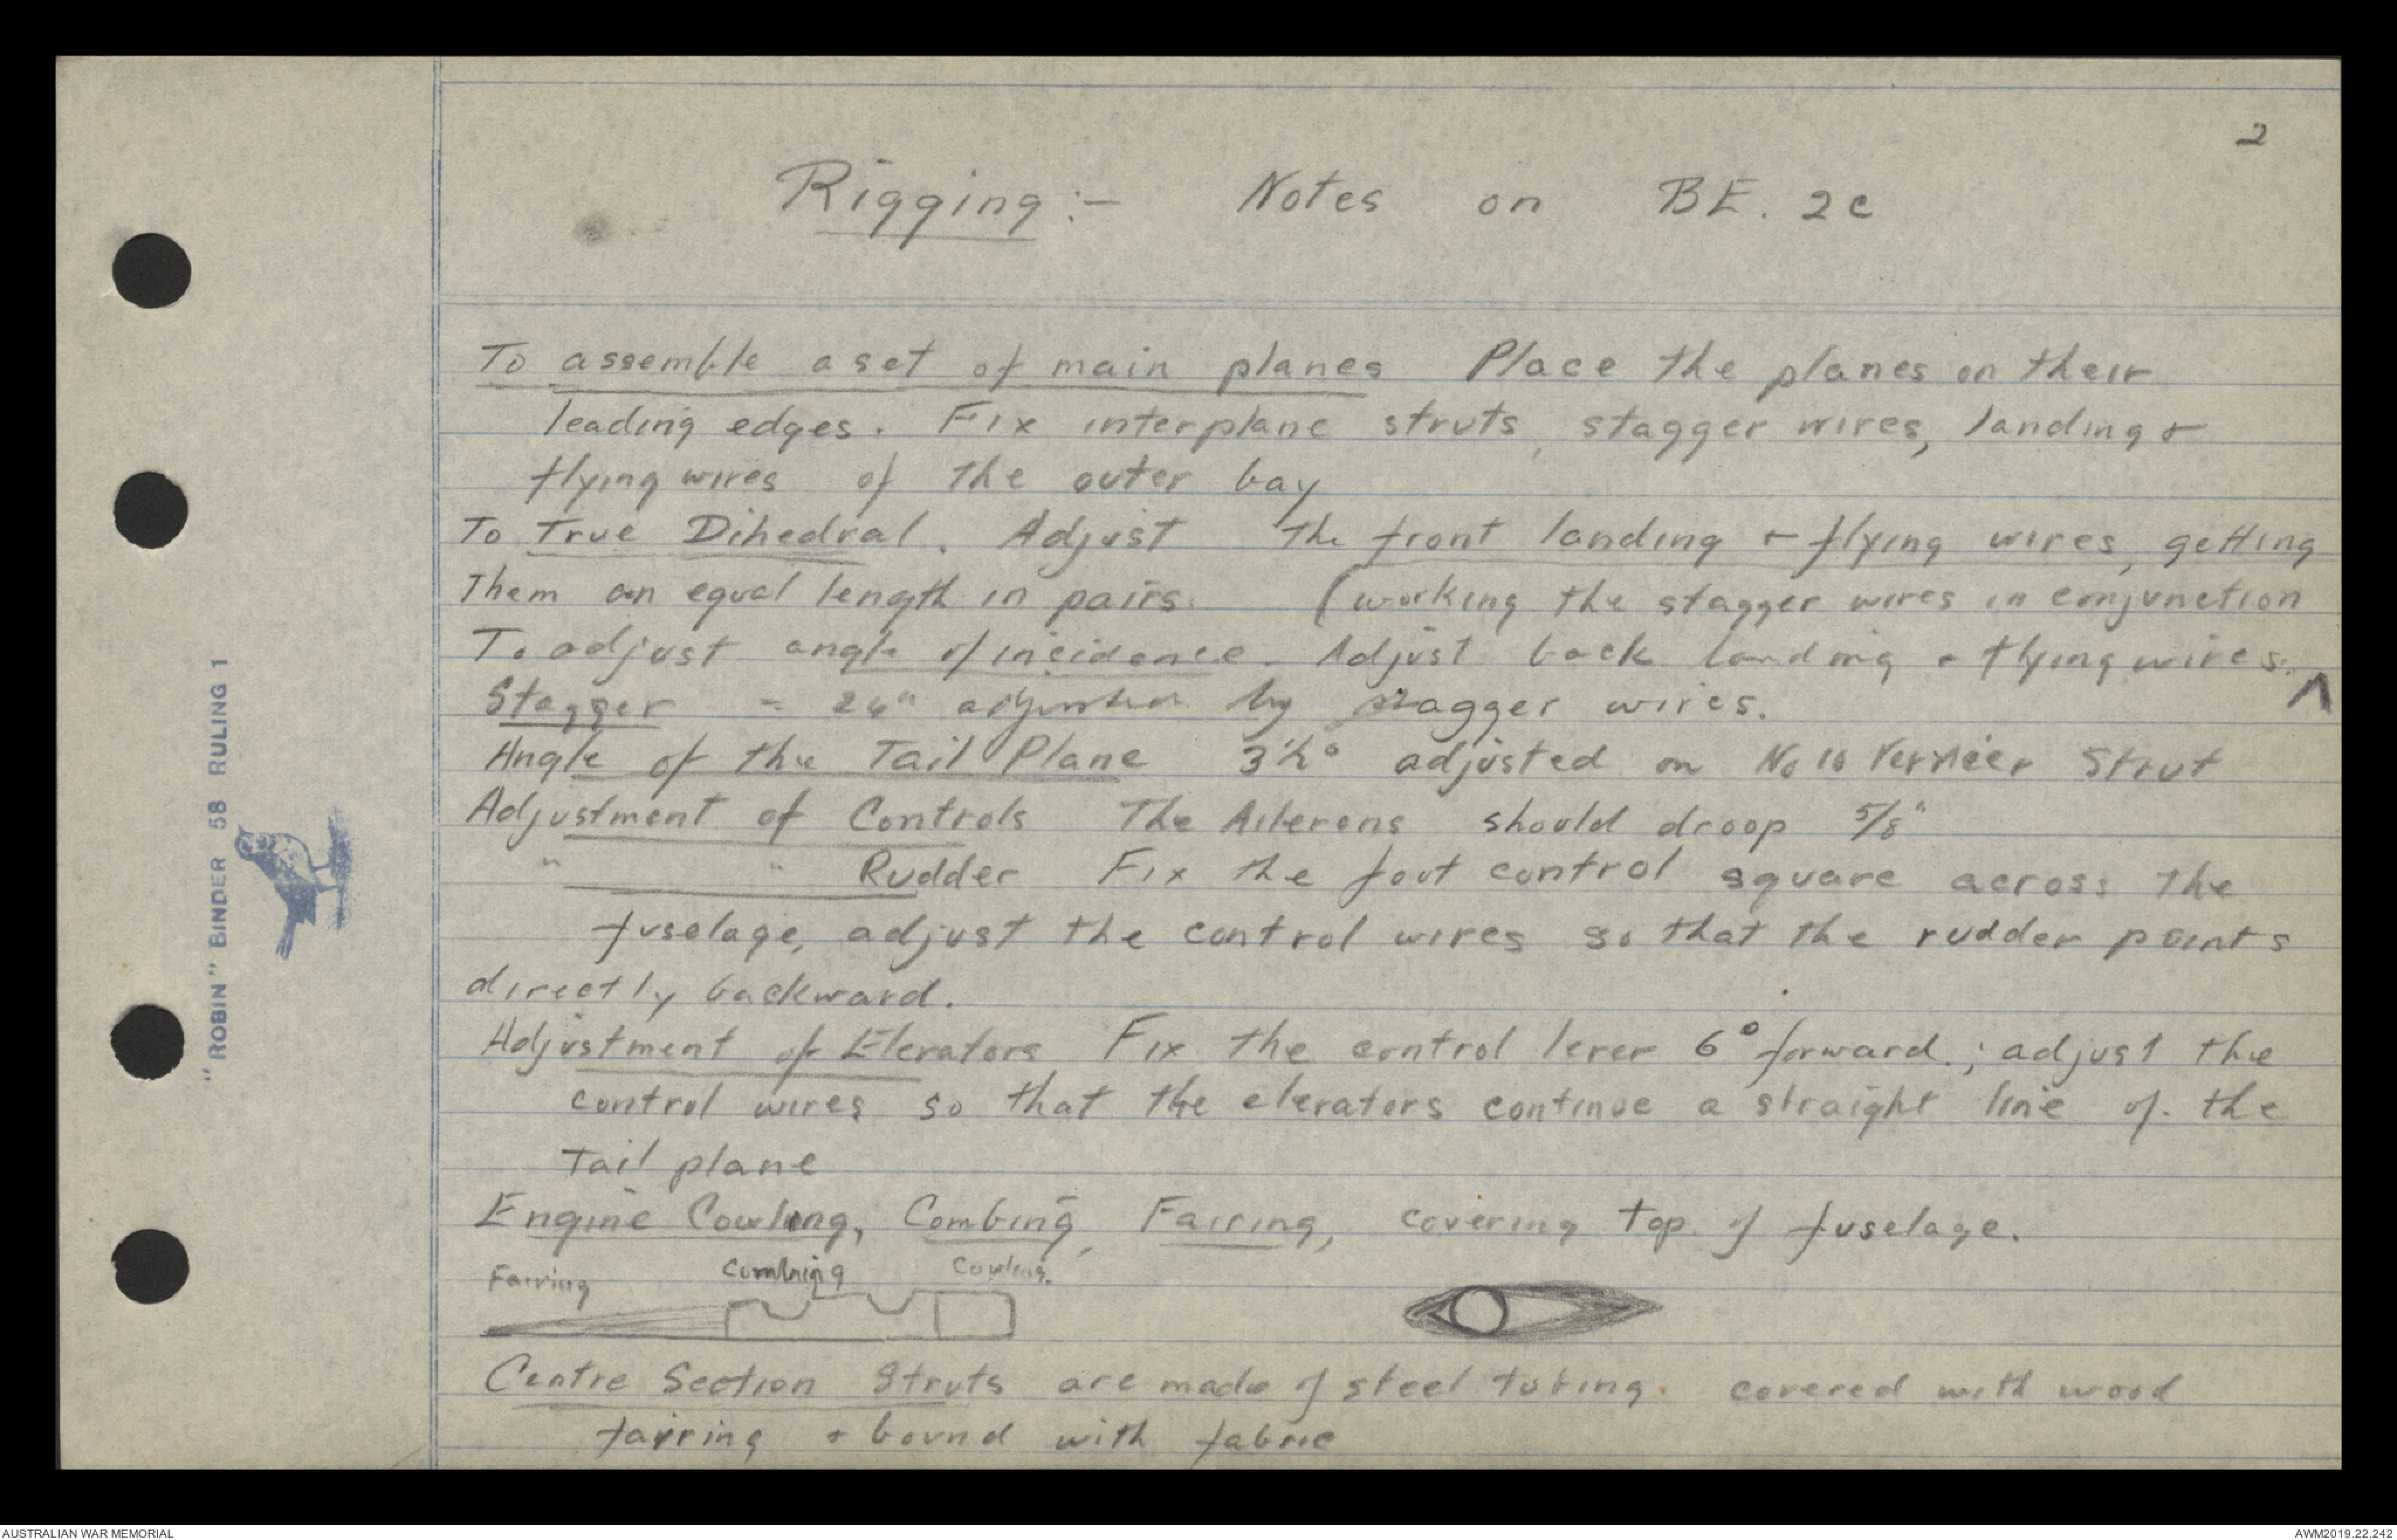 2
Rigging:- Notes on BE. 2c
To assemble a set of main planes Place the planes on their
leading edges. Fix interplane struts, stagger wires, landing &
flying wires of the outer bay
To True Dihedral. Adjust the front landing & flying wires, getting
Them an equal length in pairs. (working the stagger wires in conjunction
To adjust angle of incidence. Adjust back landing & flying wires. ^
Stagger = 24" adjusted by stagger wires.
Angle of the Tail Plane 3½° adjusted on No 10 Vernier Strut
Adjustment of Controls The Ailerons should droop 5/8"
" " Rudder Fix the foot control square across the
fuselage, adjust the control wires so that the rudder points
directly backward.
Adjustment of Elevators Fix the control lever 6° forward.; adjust the
control wires so that the elevators continue a straight line of the
Tail plane
Engine Cowling, Combing, Fairing, covering top of fuselage.
Fairing Combing Cowling.
Centre Section Struts are made of steel tubing. covered with wood
fairing & bound with fabric
"ROBIN" BINDER 58 RULING 1
AUSTRALIAN WAR MEMORIAL
AWM2019.22.242